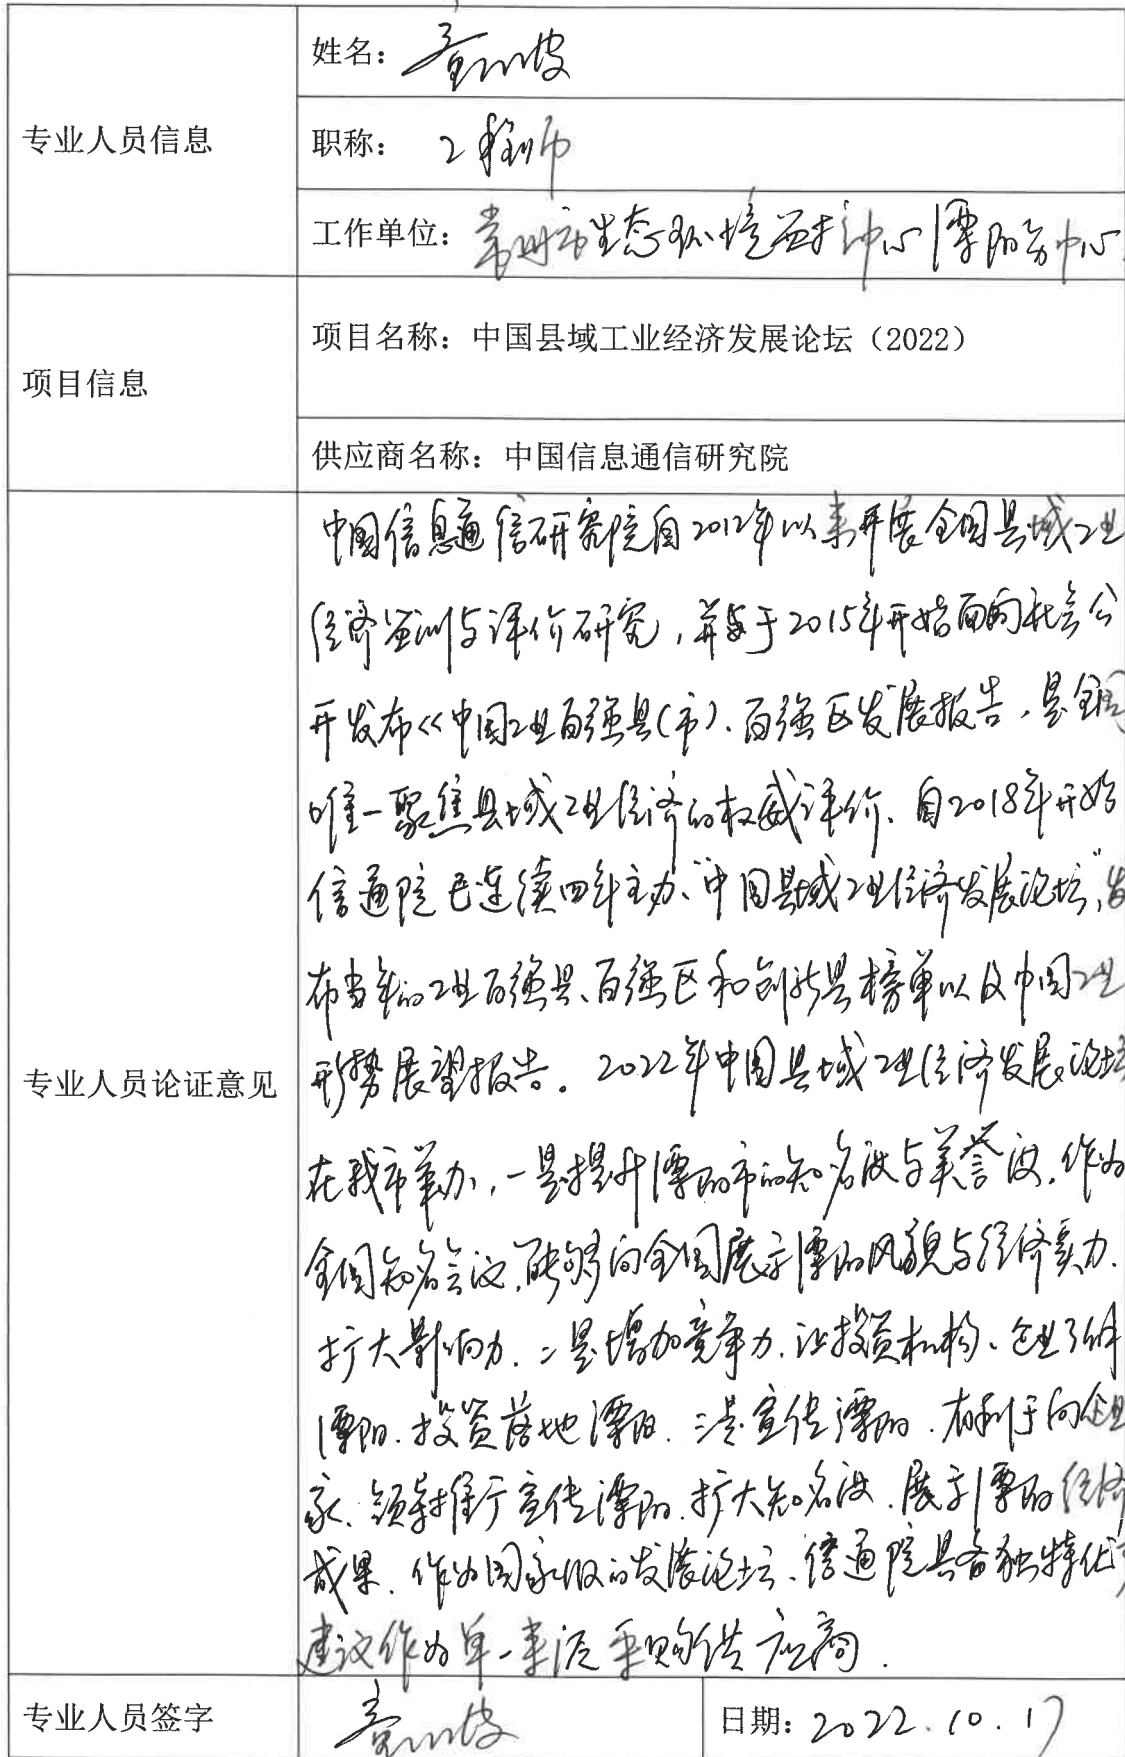 专业人员信息
姓名：
职称： 工程师
工作单位：常州市生态环境 中心溧阳分中心
项目信息
项目名称：中国县域工业经济发展论坛（2022）
供应商名称：中国信息通信研究院
专业人员论证意见
中国信息通信研究院自2012年以来开展全国县域工业
经济监测与评价研究，并于2015年开始面向社会公
开发布《中国工业百强县(市)、百强区发展报告，是全国
唯一聚焦县域工业经济的权威评价、自2018年开始
信通院已连续四年主办"中国县域工业经济发展论坛"，发
布当年的工业百强县、百强区和创新县榜单以及中国工业
形势展望报告。2022年中国县域工业经济发展论坛
在我市举办，一是提升溧阳市的知名度与美誉度，作为
全国知名会议，能够向全国展示溧阳风貌与经济实力、
扩大影响力、二是增加竞争力、让投资机构、企业了解
溧阳、投资落地溧阳、三是宣传溧阳、有利于向企业
家、领导推广宣传溧阳、扩大知名度、展示溧阳经济
成果、作为国家级的发展论坛、信通院具备独特优势
建议作为单一来源采购供应商.
专业人员签字
日期：2022.10.17